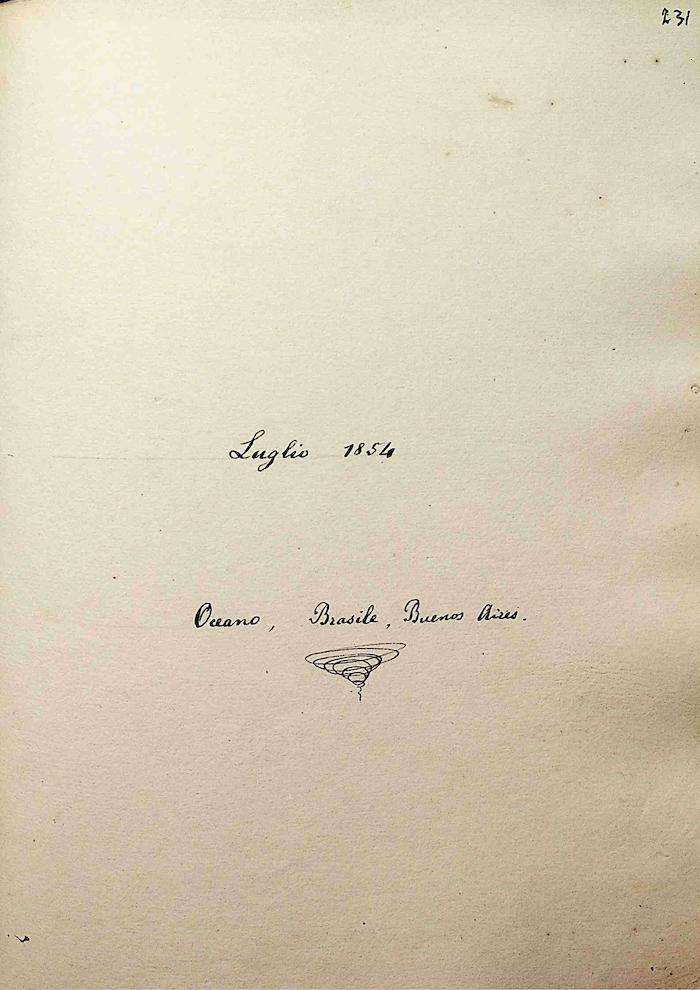 231
Luglio 1854
Oceano, Brasile, Buenos Aires.